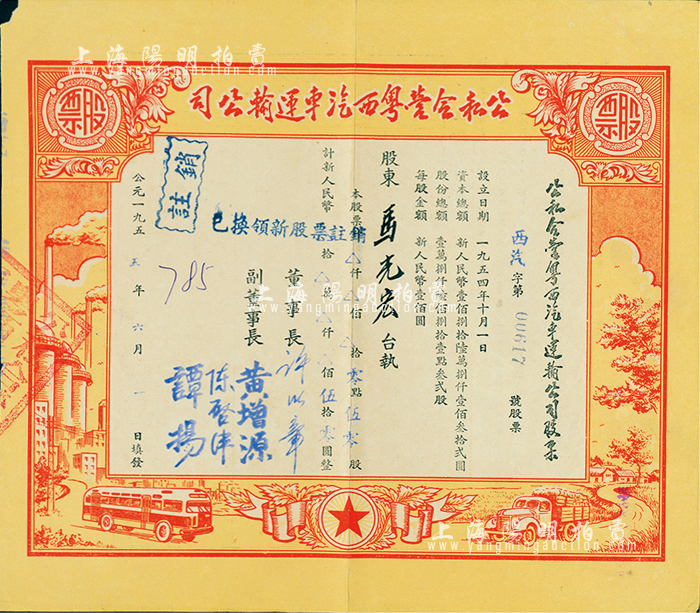 上海陽明拍賣
www.yangmingauction.com
公私合营粤西汽車運輸公司
股票
股票
公私合营粤西汽車運輸公司股票
西汽 字第 00617 號股票
設立日期 一九五四年十月一日
資本總額 新人民幣壹佰捌拾陸萬捌仟壹佰叁拾弍圓
股份總額 壹萬捌仟陸佰捌拾壹點叁弍股
每股金額 新人民幣壹佰圓
股東 馬克宏 台執
本股票 △仟△佰△拾零點伍零股
計新人民幣 △拾△萬△仟△佰伍拾零圓整
已換領新股票註銷
註銷
董事長
副董事長
黄增源
譚揚
785
公元一九五五年六月一日填發
上海陽明拍賣
www.yangmingauction.com